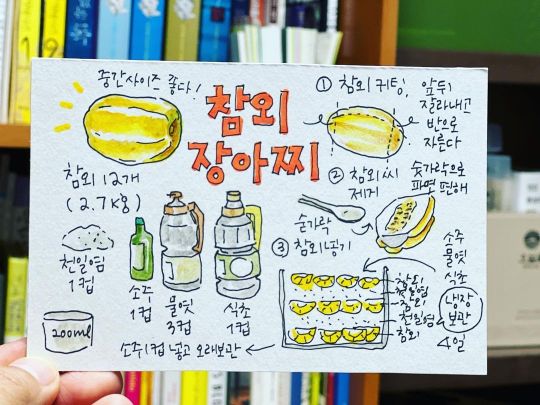 중간사이즈 좋다!
참외
장아찌
참외 12개
(2.7kg)
천일염
1컵
200ml
소주
1컵
물엿
3컵
식초
1컵
소주 1컵 넣고 오래보관
① 참외 커팅,
앞뒤
잘라내고
반으로
자른다
② 참외씨
제거
숟가락으로
파면 편해
숟가락
③ 참외넣기
참외
천일염
참외
천일염
참외
소주
물엿
식초
냉장
보관
4일